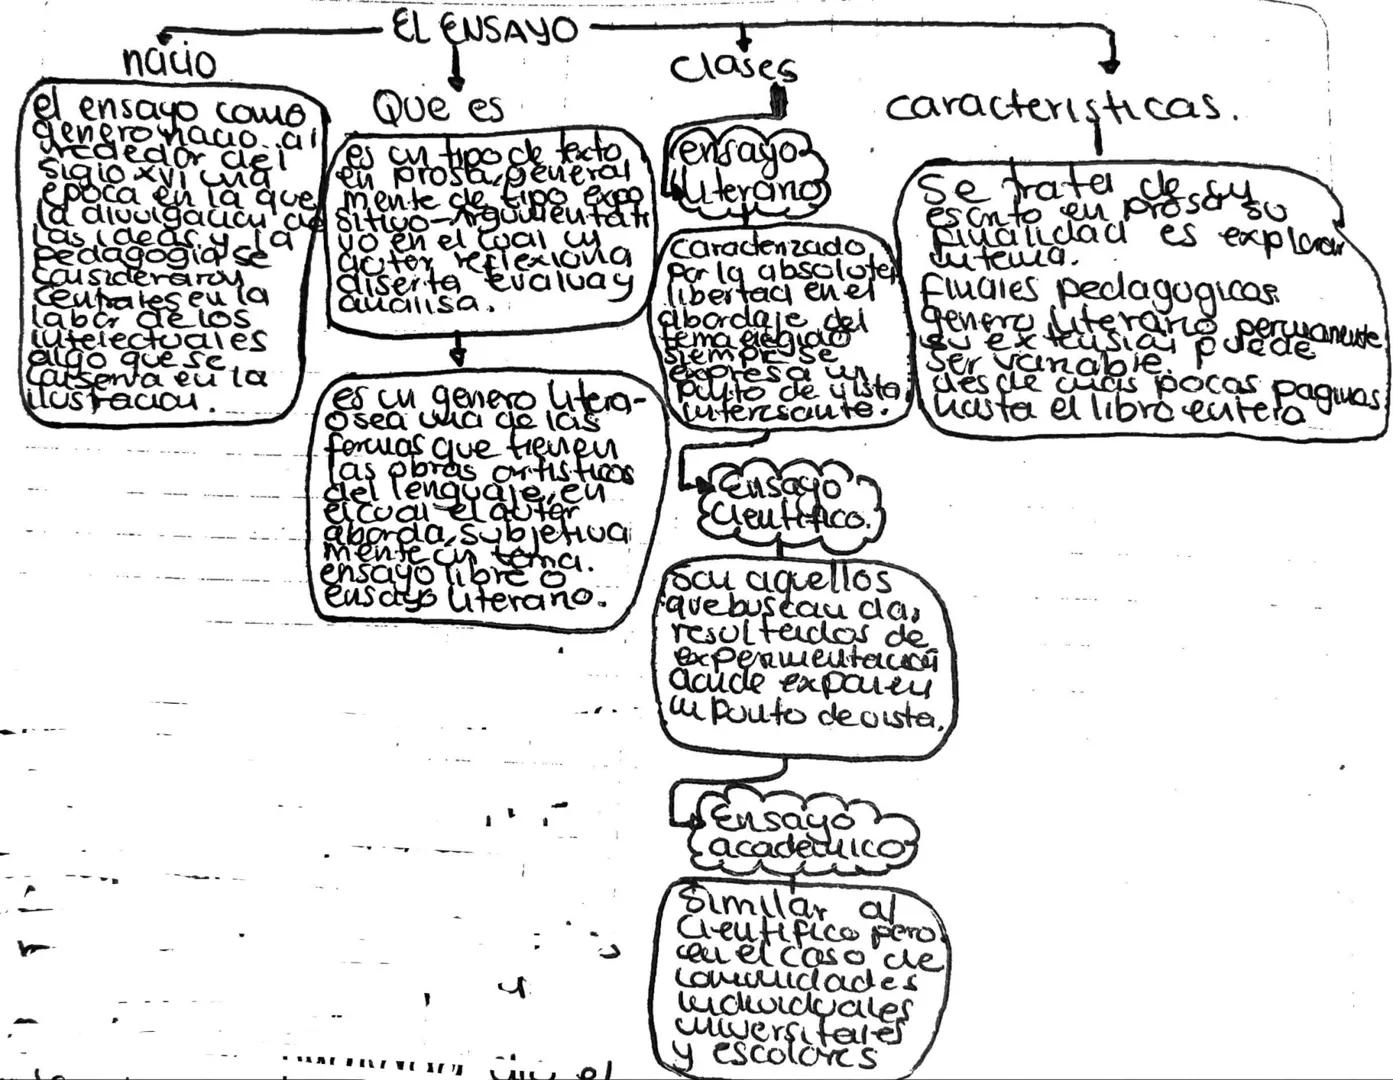 EL ENSAYO
nacio
el ensayo como
genero nacio al
rededor del
siglo XVI una
epoca en la que
la divulgacion de
las ideas y la
pedagogia se
consideraron
centrales en la
labor de los
intelectuales
algo que se
conserva en la
ilustracion.
Que es
es un tipo de texto
en prosa, general
mente de tipo expo
sitivo-Argumentati
vo en el cual un
autor reflexiona
diserta evalua y
analisa.
es un genero litera-
o sea una de las
formas que tienen
las obras artisticos
del lenguaje, en
el cual el autor
aborda, subjetiva
mente un tema.
ensayo libre o
ensayo literario.
Clases
ensayo
literario
Caracterizado
por la absoluta
libertad en el
abordaje del
tema elegido
siempre se
expresa un
punto de vista
interesante.
Ensayo
cientifico.
son aquellos
que buscan da,
resultados de
experimentacion
acude exponen
un punto de vista.
Ensayo
academico
Similar al
Cientifico pero
en el caso de
comunidades
individuales
universitales
y escolares
caracteristicas.
Se trata de su
escrito en prosa su
finalidad es explorar
un tema.
Finales pedagogicos
genero literario permanente
su extension puede
ser variable.
desde unas pocas paginas
hasta el libro entero
el